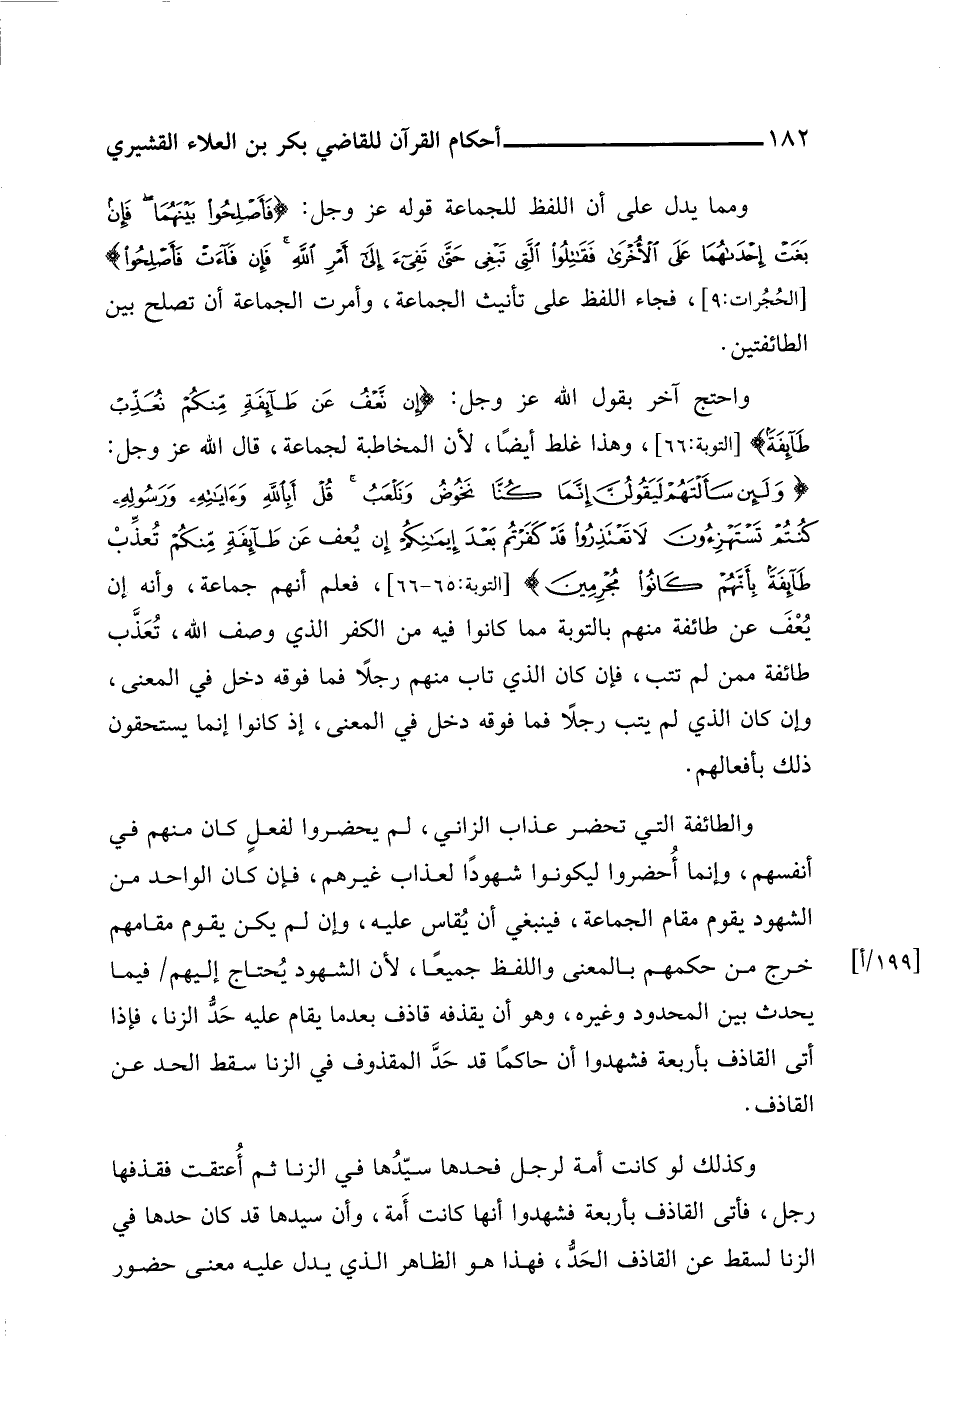 ١٨٢ أحكام القرآن للقاضي بكر بن العلاء القشيري
ومما يدل على أن اللفظ للجماعة قوله عز وجل: ﴿فَأَصْلِحُوا۟ بَيْنَهُمَا ۖ فَإِنۢ
بَغَتْ إِحْدَىٰهُمَا عَلَى ٱلْأُخْرَىٰ فَقَٰتِلُوا۟ ٱلَّتِى تَبْغِى حَتَّىٰ تَفِىٓءَ إِلَىٰٓ أَمْرِ ٱللَّهِ ۚ فَإِن فَآءَتْ فَأَصْلِحُوا۟﴾
[الحُجُرات:٩]، فجاء اللفظ على تأنيث الجماعة، وأمرت الجماعة أن تصلح بين
الطائفتين.
واحتج آخر بقول الله عز وجل: ﴿إِن نَّعْفُ عَن طَآئِفَةٍ مِّنكُمْ نُعَذِّبْ
طَآئِفَةًۢ﴾ [التوبة:٦٦]، وهذا غلط أيضًا، لأن المخاطبة لجماعة، قال الله عز وجل:
﴿وَلَئِن سَأَلْتَهُمْ لَيَقُولُنَّ إِنَّمَا كُنَّا نَخُوضُ وَنَلْعَبُ ۚ قُلْ أَبِٱللَّهِ وَءَايَٰتِهِۦ وَرَسُولِهِۦ
كُنتُمْ تَسْتَهْزِءُونَ لَا تَعْتَذِرُوا۟ قَدْ كَفَرْتُم بَعْدَ إِيمَٰنِكُمْ إِن يُعف عَن طَآئِفَةٍ مِّنكُمْ تُعذَّبْ
طَآئِفَةٌۢ بِأَنَّهُمْ كَانُوا۟ مُجْرِمِينَ﴾ [التوبة:٦٥-٦٦]، فعلم أنهم جماعة، وأنه إن
يُعْفَ عن طائفة منهم بالتوبة مما كانوا فيه من الكفر الذي وصف الله، تُعَذَّب
طائفة ممن لم تتب، فإن كان الذي تاب منهم رجلًا فما فوقه دخل في المعنى،
وإن كان الذي لم يتب رجلًا فما فوقه دخل في المعنى، إذ كانوا إنما يستحقون
ذلك بأفعالهم.
والطائفة التي تحضر عذاب الزاني، لم يحضروا لفعلٍ كان منهم في
أنفسهم، وإنما أُحضروا ليكونوا شهودًا لعذاب غيرهم، فإن كان الواحد من
الشهود يقوم مقام الجماعة، فينبغي أن يُقاس عليه، وإن لم يكن يقوم مقامهم
خرج من حكمهم بالمعنى واللفظ جميعًا، لأن الشهود يُحتاج إليهم/ فيما [١٩٩/أ]
يحدث بين المحدود وغيره، وهو أن يقذفه قاذف بعدما يقام عليه حَدُّ الزنا، فإذا
أتى القاذف بأربعة فشهدوا أن حاكمًا قد حَدَّ المقذوف في الزنا سقط الحد عن
القاذف.
وكذلك لو كانت أمة لرجل فحدها سيّدُها في الزنا ثم أُعتقت فقذفها
رجل، فأتى القاذف بأربعة فشهدوا أنها كانت أَمة، وأن سيدها قد كان حدها في
الزنا لسقط عن القاذف الحَدُّ، فهذا هو الظاهر الذي يدل عليه معنى حضور